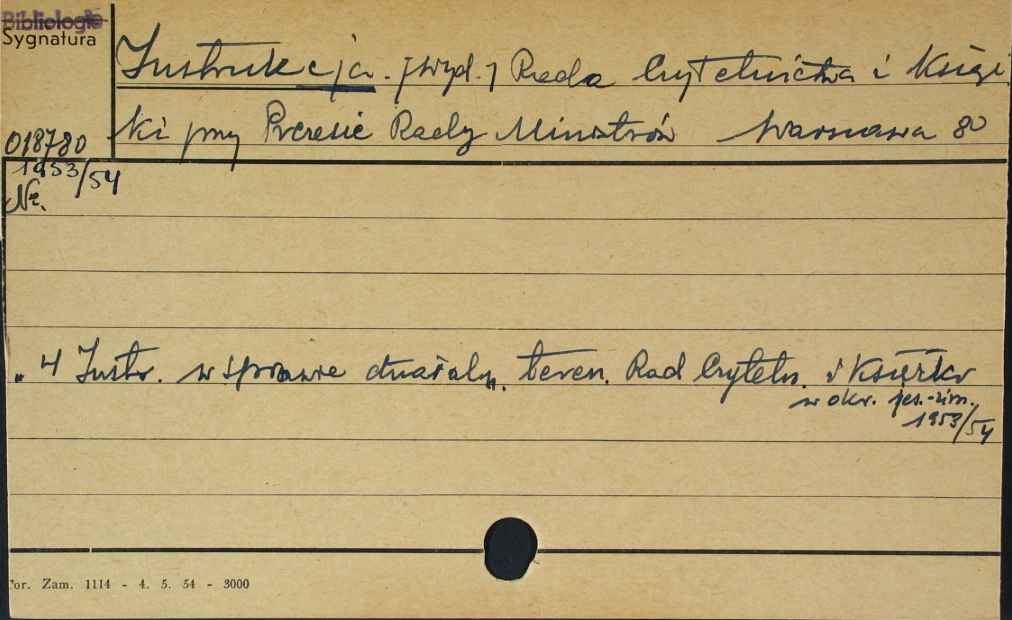 Bibliologia
Sygnatura
Instrukcja. [Wyd.] Rada Czytelnictwa i Książ
ki przy Prezesie Rady Ministrów Warszawa 8°
018780
1953/54
Nr.
" 4 Instr. w sprawie działaln. teren. Rad Czyteln. i Książki
w okr. jes.-zim.
1953/54
Tor. Zam. 1114 - 4. 5. 54 - 3000